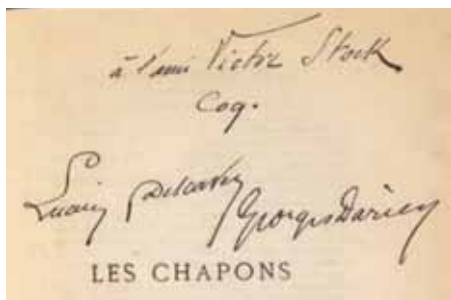 à l'ami Victor Stock
Coq.
Lucien Descaves Georges Darien
LES CHAPONS